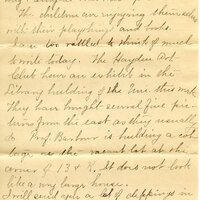 The children are enjoying themselves
with their playthings and books.
I am too rattled to think of much
to write today. The Hayden Art
Club have an exhibit in the
Library building of the Uni. this week.
They have bought several fine pic-
tures from the east as they usually
do. Prof. Barbour is building a cot-
tage on the vacant lot at the
corner of 13 & K. It does not look
like a very large house.
I will send you a lot of clippings in